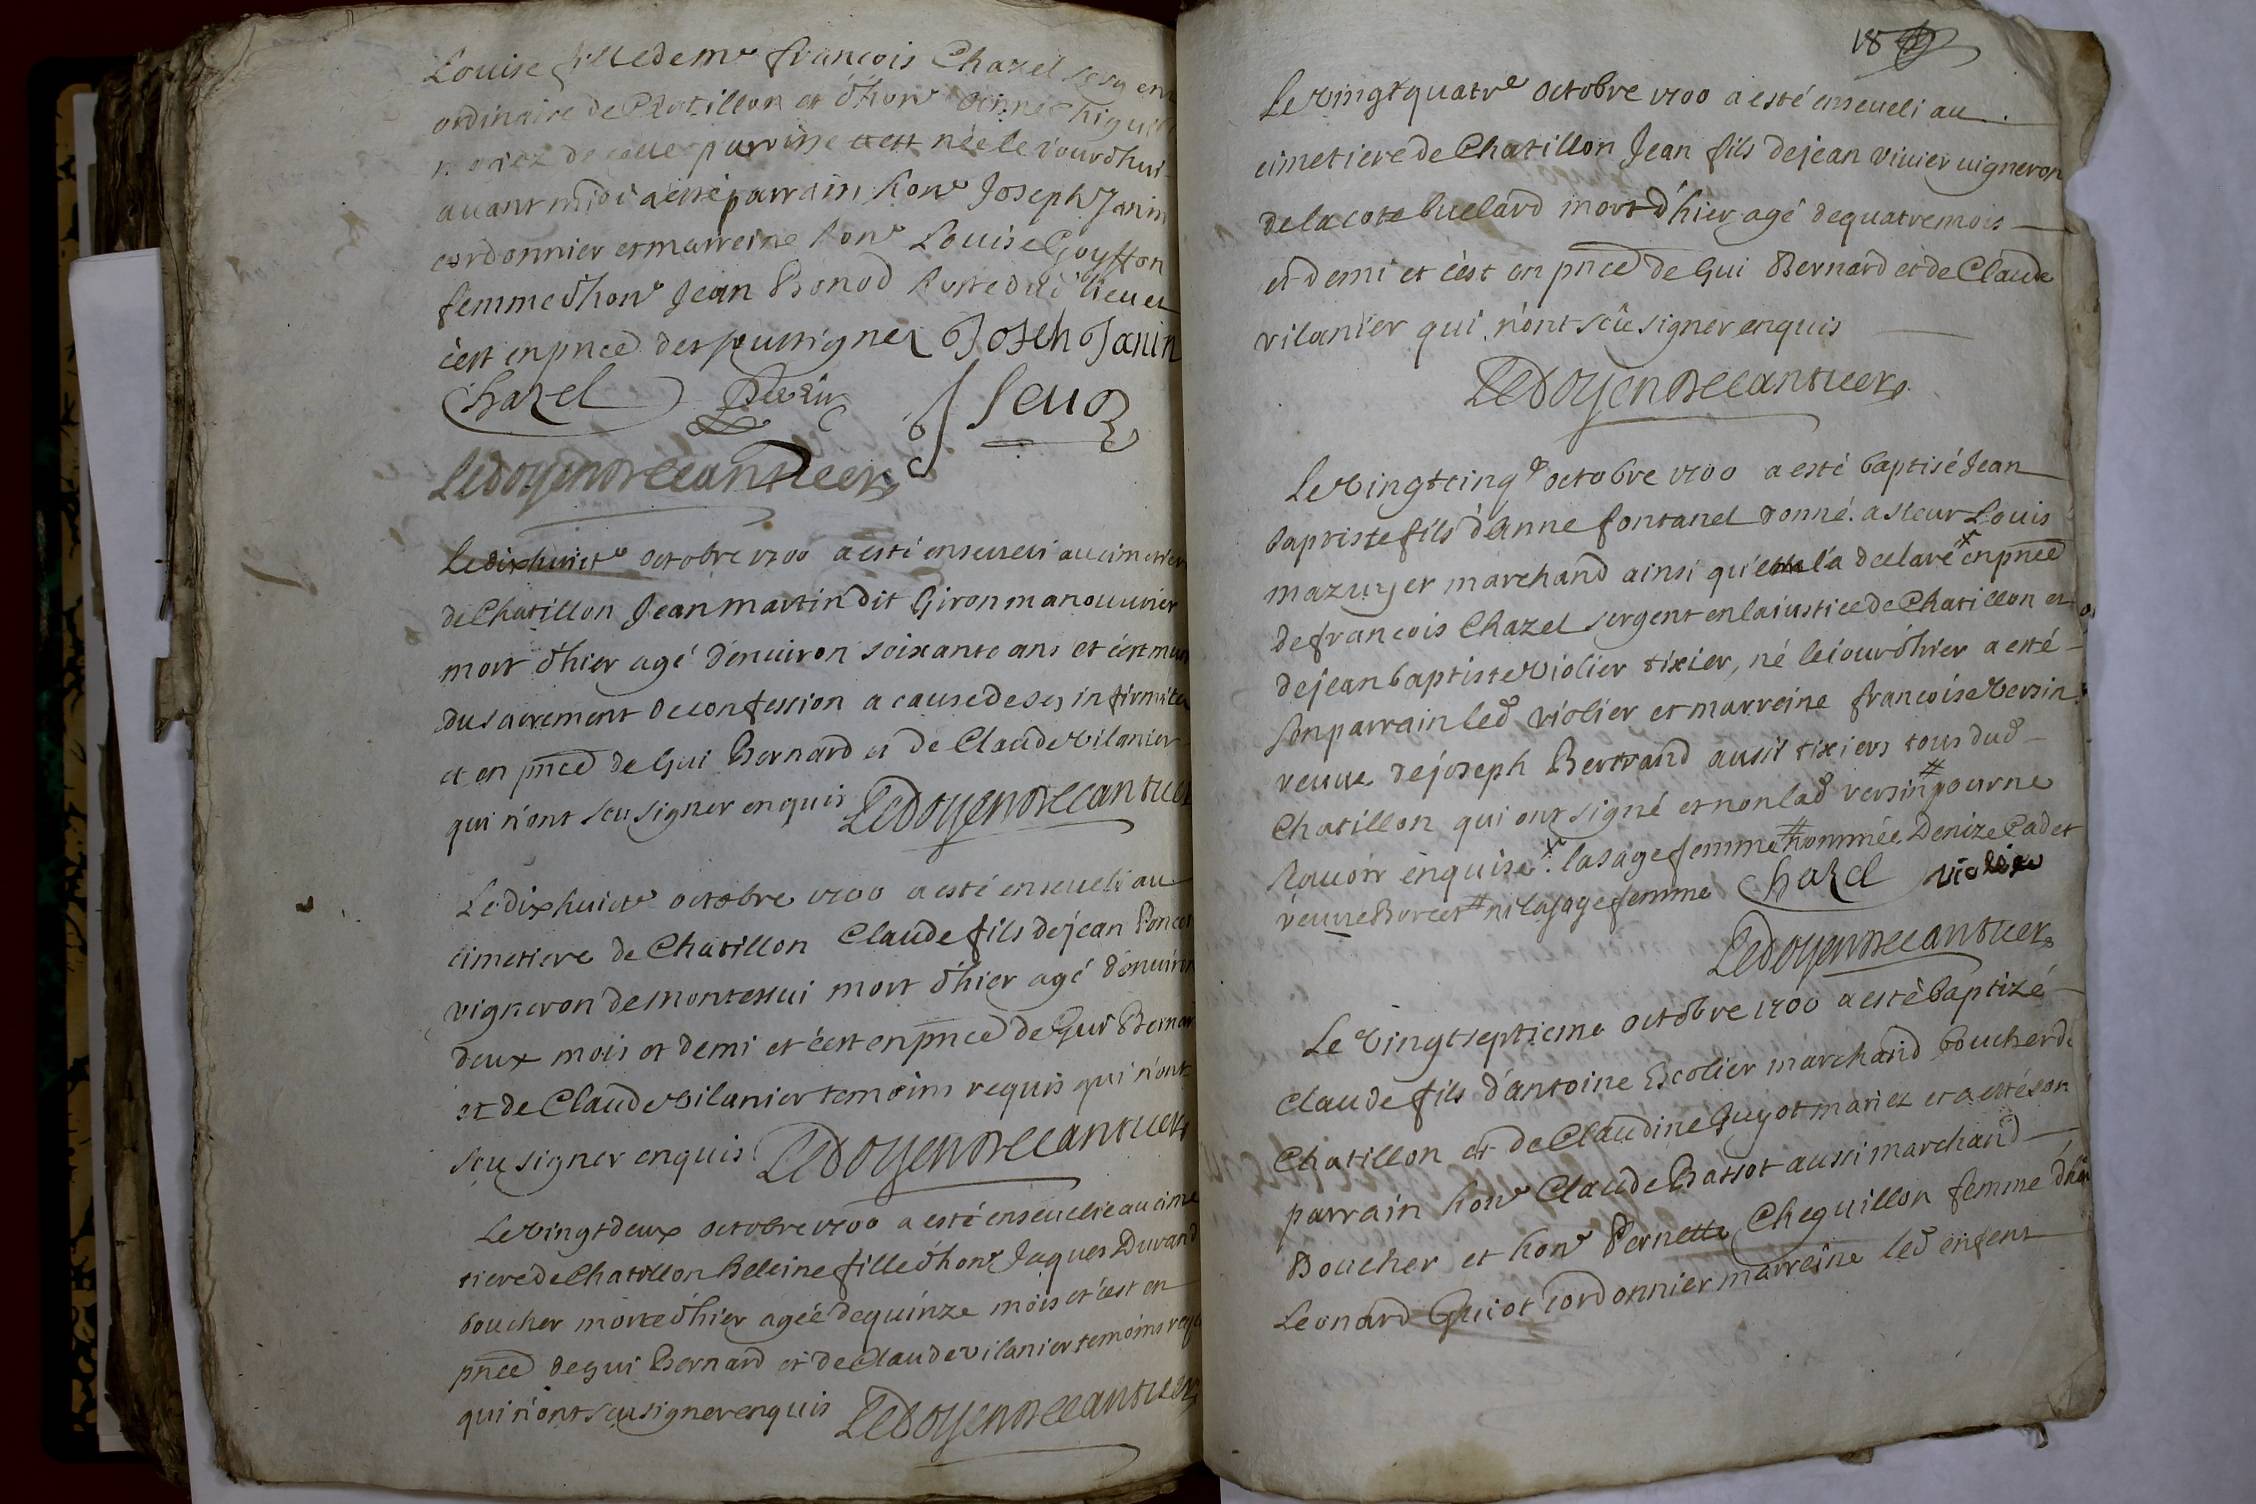 Louise fille de mr francois Chazel serg en
ordinaire de Chatillon et d'honr
mariez de cette parroisse est née le iourdhui
avant midi a esté parrain honr Joseph Janin
cordonnier et marreine honr Louise Goyffon
femme d'honr Jean Bonod hoste dud lieu et
c'est en pnce des soussignez Joseh Janin
Chazel
Ledoyen Decanteer
Le dixhuictr octobre 1700 a esté enseveli au cimetier
de Chatillon Jean martin dit Giron manouvrier
mort d'hier agé d'environ soixante ans et c'est muni
du sacrement de confession a cause de ses infirmitez
et en pnce de Gui Bernard et de Claude vilanier
qui n'ont scu signer enquis Ledoyen Decanteer
Le dixhuictr octobre 1700 a esté enseveli au
cimetiere de Chatillon Claude fils de jean Poncet
vigneron de montessui mort d'hier agé d'environ
deux mois et demi et c'est en pnce de Gui Bernar
et de Claude vilanier temoins requis qui n'ont
scu signer enquis Ledoyen Decanteer
Le vingtdeux octobre 1700 a esté ensevelie au cime
tiere de Chatillon heleine fille d'honr Jaques Durand
boucher morte d'hier ageé de quinze mois et c'est en
pnce de gui Bernard et de Claude vilanier temoins requ
qui n'ont scu signer enquis Ledoyen Decanteer
18
Le vingtquatre octobre 1700 a esté enseveli au
cimetiere de Chatillon Jean fils de jean vivier vigneron
de la cote buelard mort d'hier agé de quatre mois
et demi et c'est en pnce de Gui Bernard et de Claude
vilanier qui n'ont scû signer enquis
Ledoyen Decanteer
Le vingtcinqe octobre 1700 a esté baptisé Jean
baptiste fils d'Anne fontanel donné a sieur Louis
mazuyer marchand ainsi qu'elle l'a declaré x en pnce
de francois Chazel sergent en la iustice de Chatillon et
de jean baptiste violier tixier, né le iour d'hier a esté
son parrain led violier et marreine francoise versin
veuve de joseph Bertrand aussi tixiers tous dud
Chatillon qui ont signé et non lad versin # pour ne
scavoir enquise x la sage femme # nommée Denize Cadet
veuve Borcet # ni la sage femme Chazel violier
Ledoyen Decanteer
Le vingtseptieme octobre 1700 a esté baptizé
claude fils d'antoine Escolier marchand boucher de
Chatillon et de Claudine Guyot mariez et a esté son
parrain honr Claude Bassot aussi marchand
Boucher et honr Pernette Cheguillon femme d'hor
Leonard Guiot cordonnier marreine led enfent